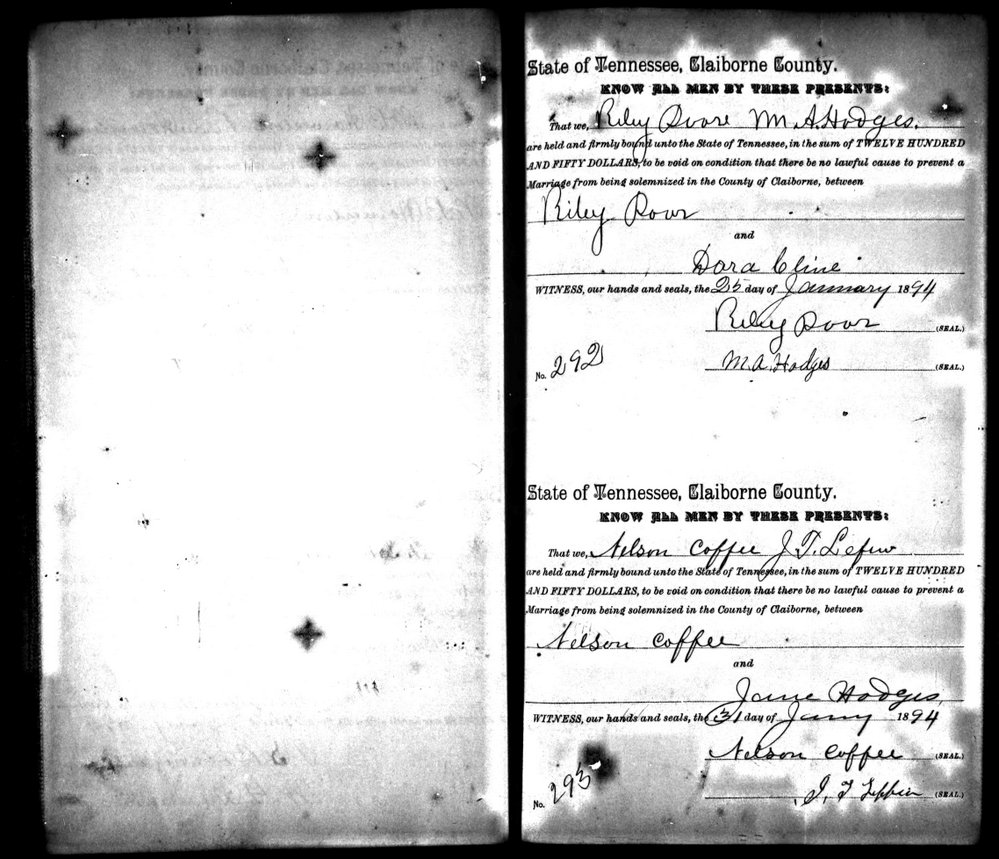 State of Tennessee, Claiborne County.
KNOW ALL MEN BY THESE PRESENTS:
That we, Riley Poore M. A. Hodges.
are held and firmly bound unto the State of Tennessee, in the sum of TWELVE HUNDRED
AND FIFTY DOLLARS, to be void on condition that there be no lawful cause to prevent a
Marriage from being solemnized in the County of Claiborne, between
Riley Poor
and
Dora Cline
WITNESS, our hands and seals, the 25 day of January 1894
Riley Poor (SEAL.)
No. 292 M. A. Hodges (SEAL.)
State of Tennessee, Claiborne County.
KNOW ALL MEN BY THESE PRESENTS:
That we, Nelson Coffee J. T.
are held and firmly bound unto the State of Tennessee, in the sum of TWELVE HUNDRED
AND FIFTY DOLLARS, to be void on condition that there be no lawful cause to prevent a
Marriage from being solemnized in the County of Claiborne, between
Nelson Coffee
and
Jane Hodges
WITNESS, our hands and seals, the 31 day of Jany 1894
Nelson Coffee (SEAL.)
No. 293 (SEAL.)